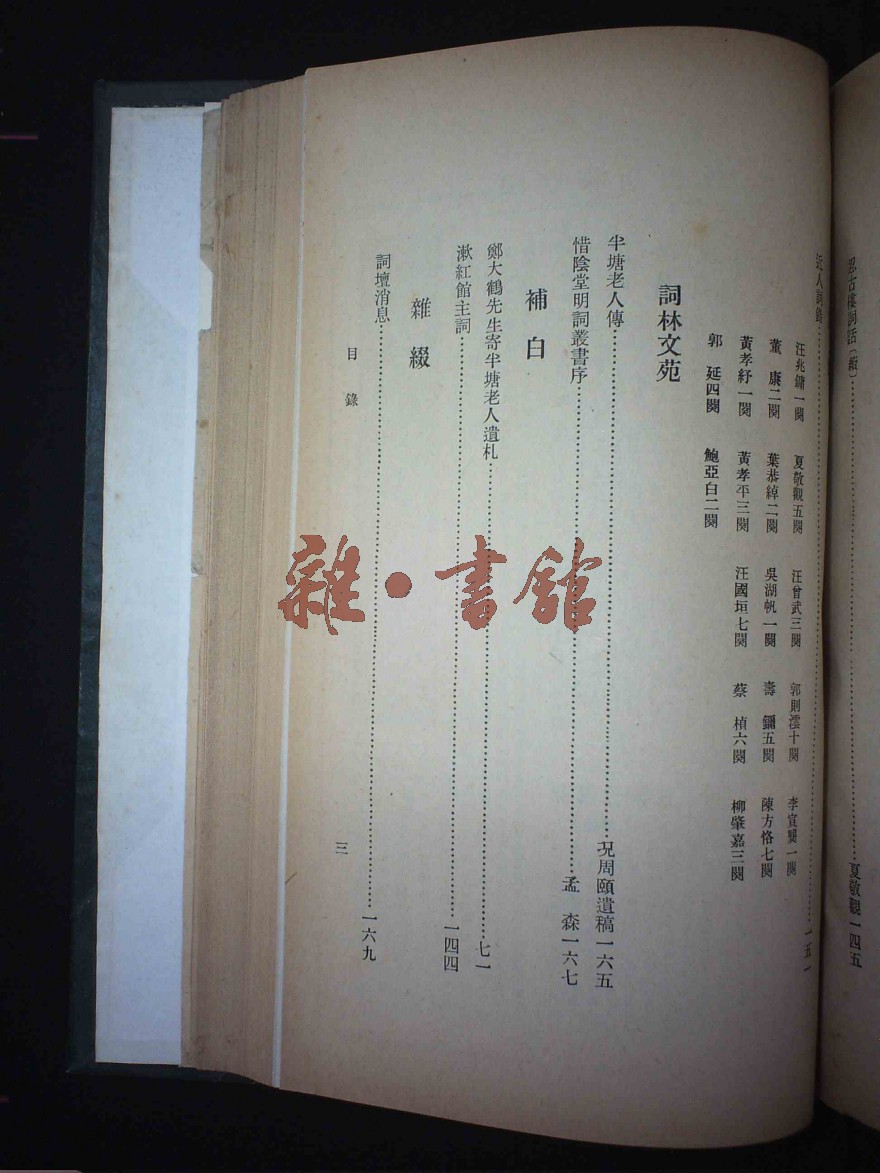 忍古樓詞話（續）……夏敬觀一四五
近人詞錄……一五一
汪兆鏞一闋　夏敬觀五闋　汪曾武三闋　郭則澐十闋　李宣龔一闋
董　康二闋　葉恭綽二闋　吳湖帆一闋　壽　鑈五闋　陳方恪七闋
黃孝紓一闋　黃孝平三闋　汪國垣七闋　蔡　楨六闋　柳肇嘉三闋
郭　延四闋　鮑亞白二闋
詞林文苑
半塘老人傳……況周頤遺稿一六五
惜陰堂明詞叢書序……孟　森一六七
補白
鄭大鶴先生寄半塘老人遺札……七一
漱紅館主詞……一四四
雜綴
詞壇消息……一六九
目錄　三
雜·書館